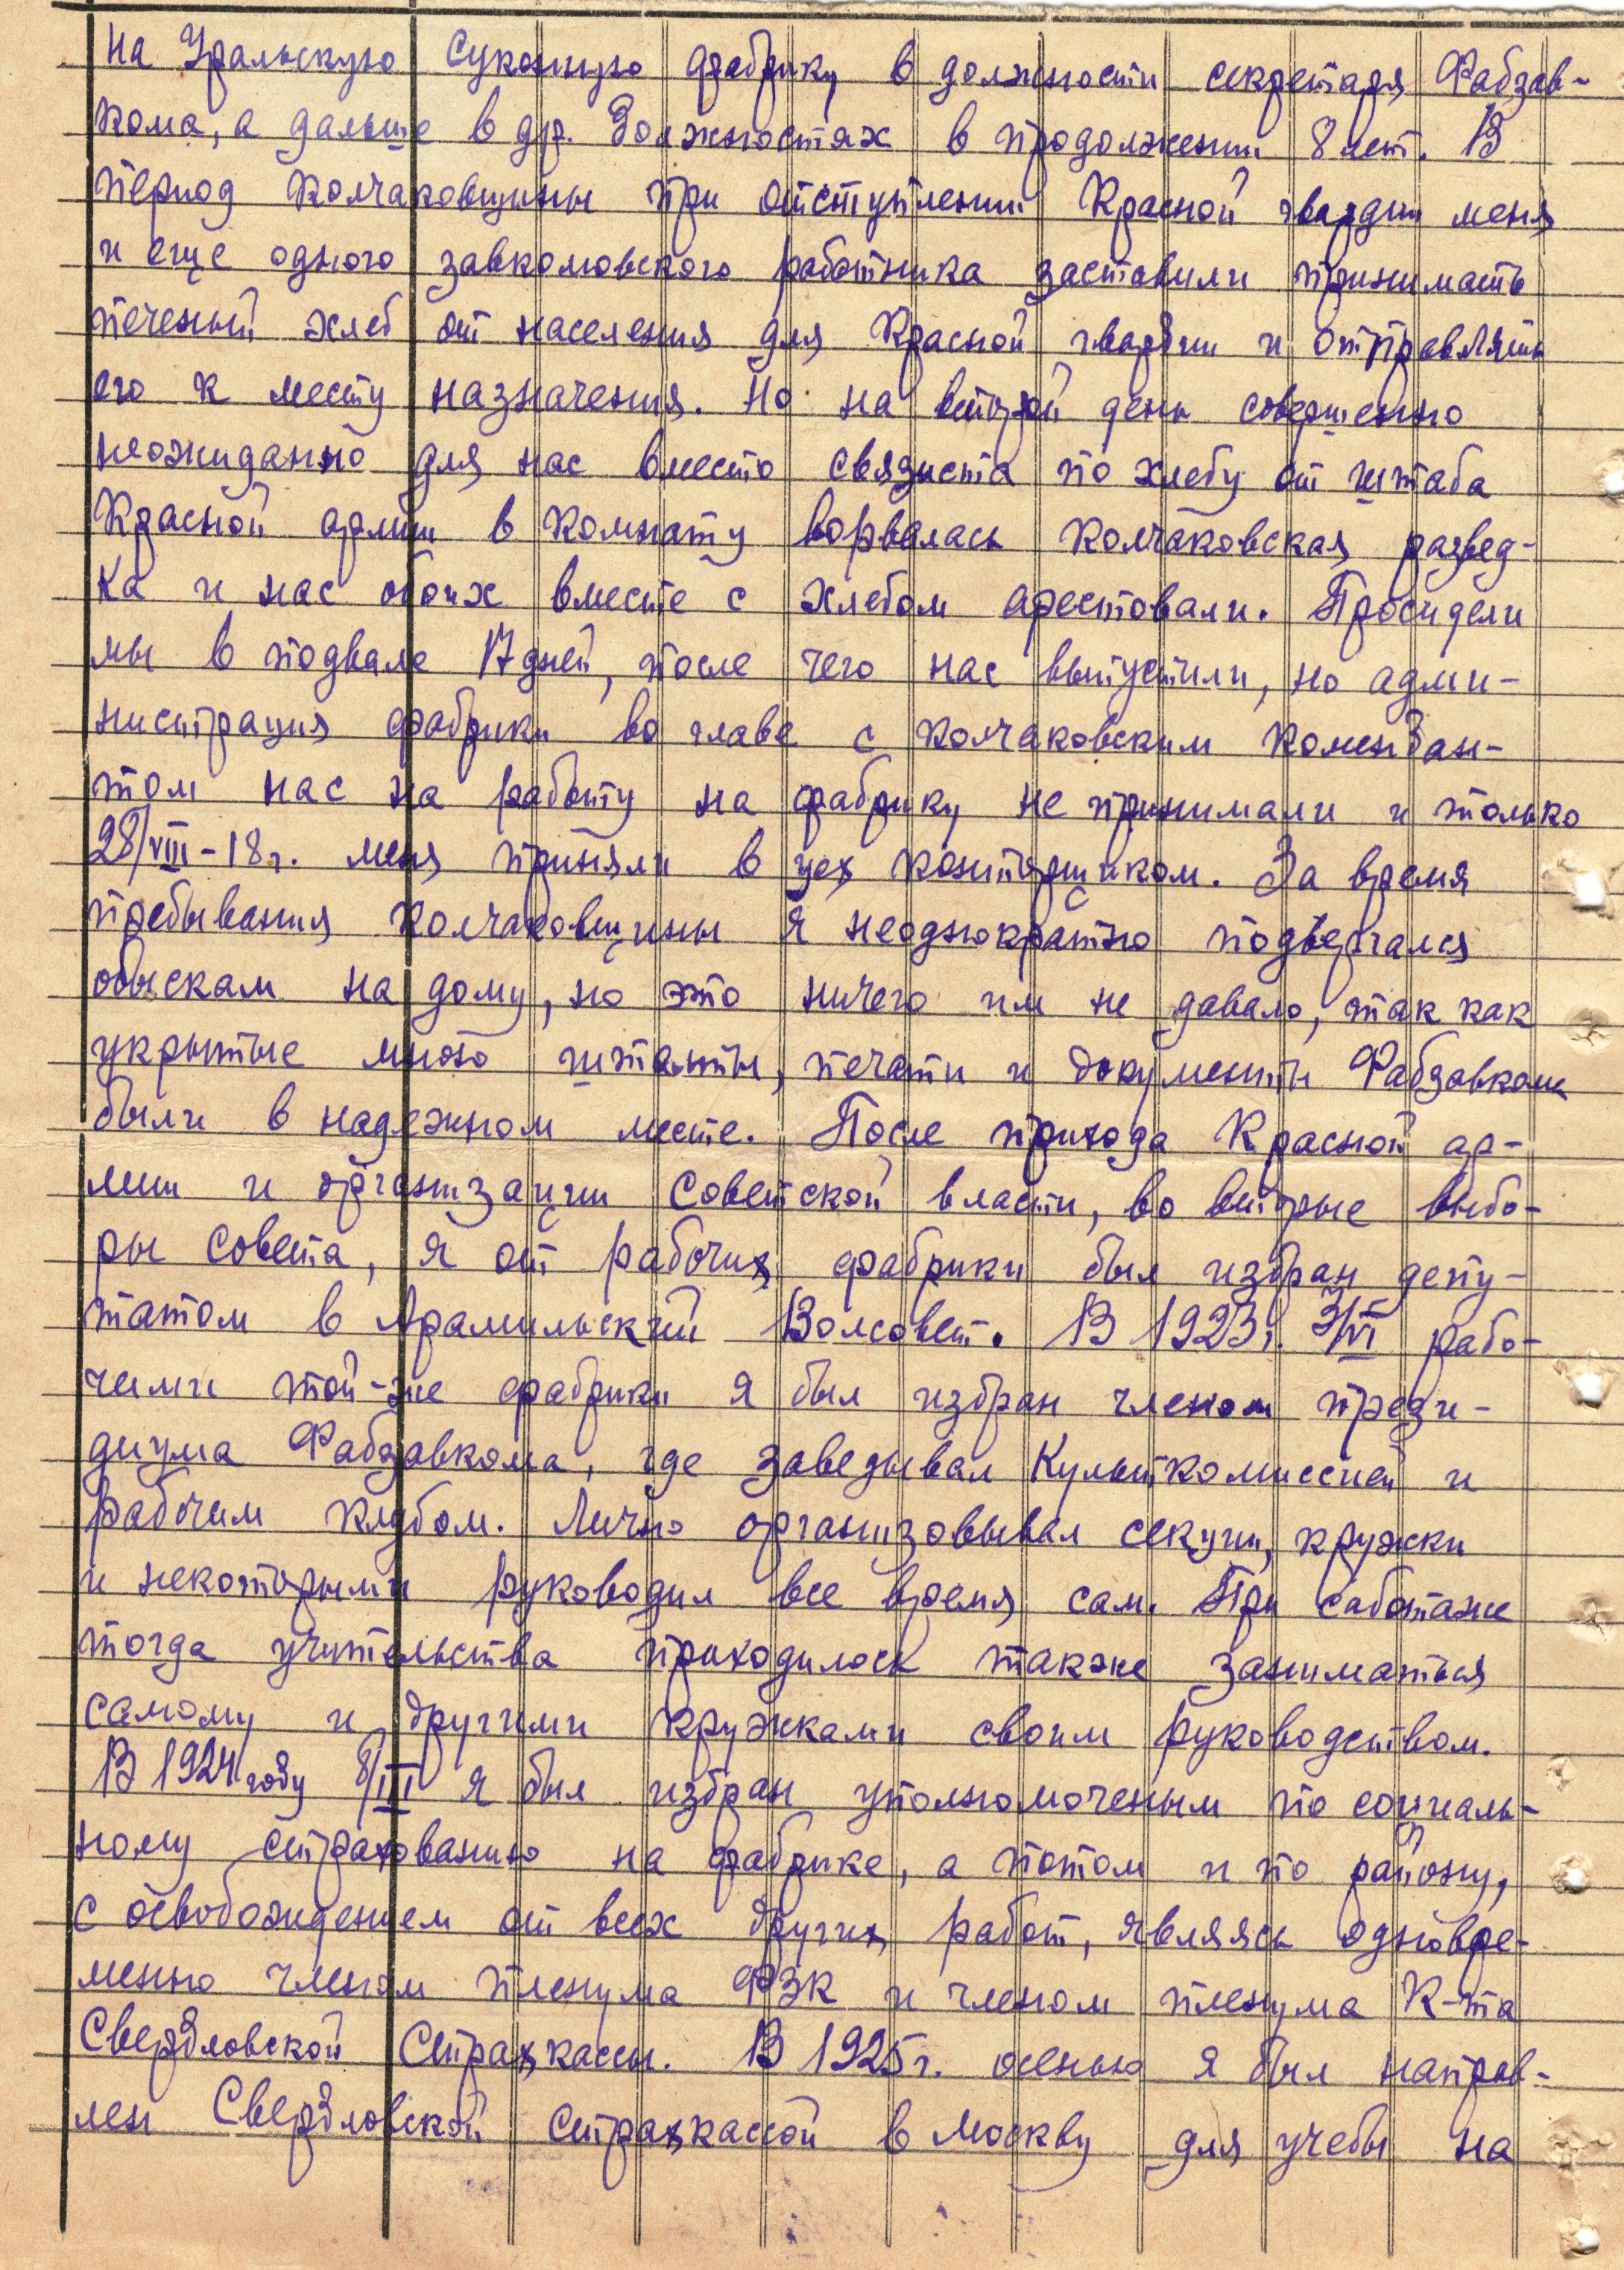 на Уральскую Суконную фабрику в должности секретаря Фабзав-
кома, а дальше в др. должностях в продолжении 8 лет. В
период колчаковщины при отступлении Красной гвардии меня
и еще одного завкомовского работника заставили принимать
печеный хлеб от населения для Красной гвардии и отправлять
его к месту назначения. Но на второй день совершенно
неожиданно для нас вместо связиста по хлебу от штаба
Красной армии в комнату ворвалась колчаковская развед-
ка и нас обоих вместе с хлебом арестовали. Просидели
мы в подвале 17 дней, после чего нас выпустили, но адми-
нистрация фабрики во главе с колчаковским комендан-
том нас на работу на фабрику не принимали и только
28/VIII-18г. меня приняли в цех конторщиком. За время
пребывания колчаковщины я неоднократно подвергался
обыскам на дому, но это ничего им не давало, так как
укрытые мною штампы, печати и документы Фабзавкома
были в надежном месте. После прихода Красной ар-
мии и организации Советской власти, во вторые выбо-
ры совета, я от рабочих фабрики был избран депу-
татом в Арамильский Волсовет. В 1923г. 3/VI рабо-
чими той-же фабрики я был избран членом прези-
диума Фабзавкома, где заведывал Культкомиссией и
рабочим клубом. Лично организовывал секции, кружки
и некоторыми руководил все время сам. При саботаже
тогда учительства приходилось также заниматься
самому и другими кружками своим руководством.
В 1924 году 8/III я был избран уполномоченым по социаль-
ному страхованию на фабрике, а потом и по району,
с освобождением от всех других работ, являясь одновре-
менно членом пленума ФЗК и членом пленума К-та
Свердловской Страхкассы. В 1925г. осенью я был направ-
лен Свердловской страхкассой в Москву для учебы на